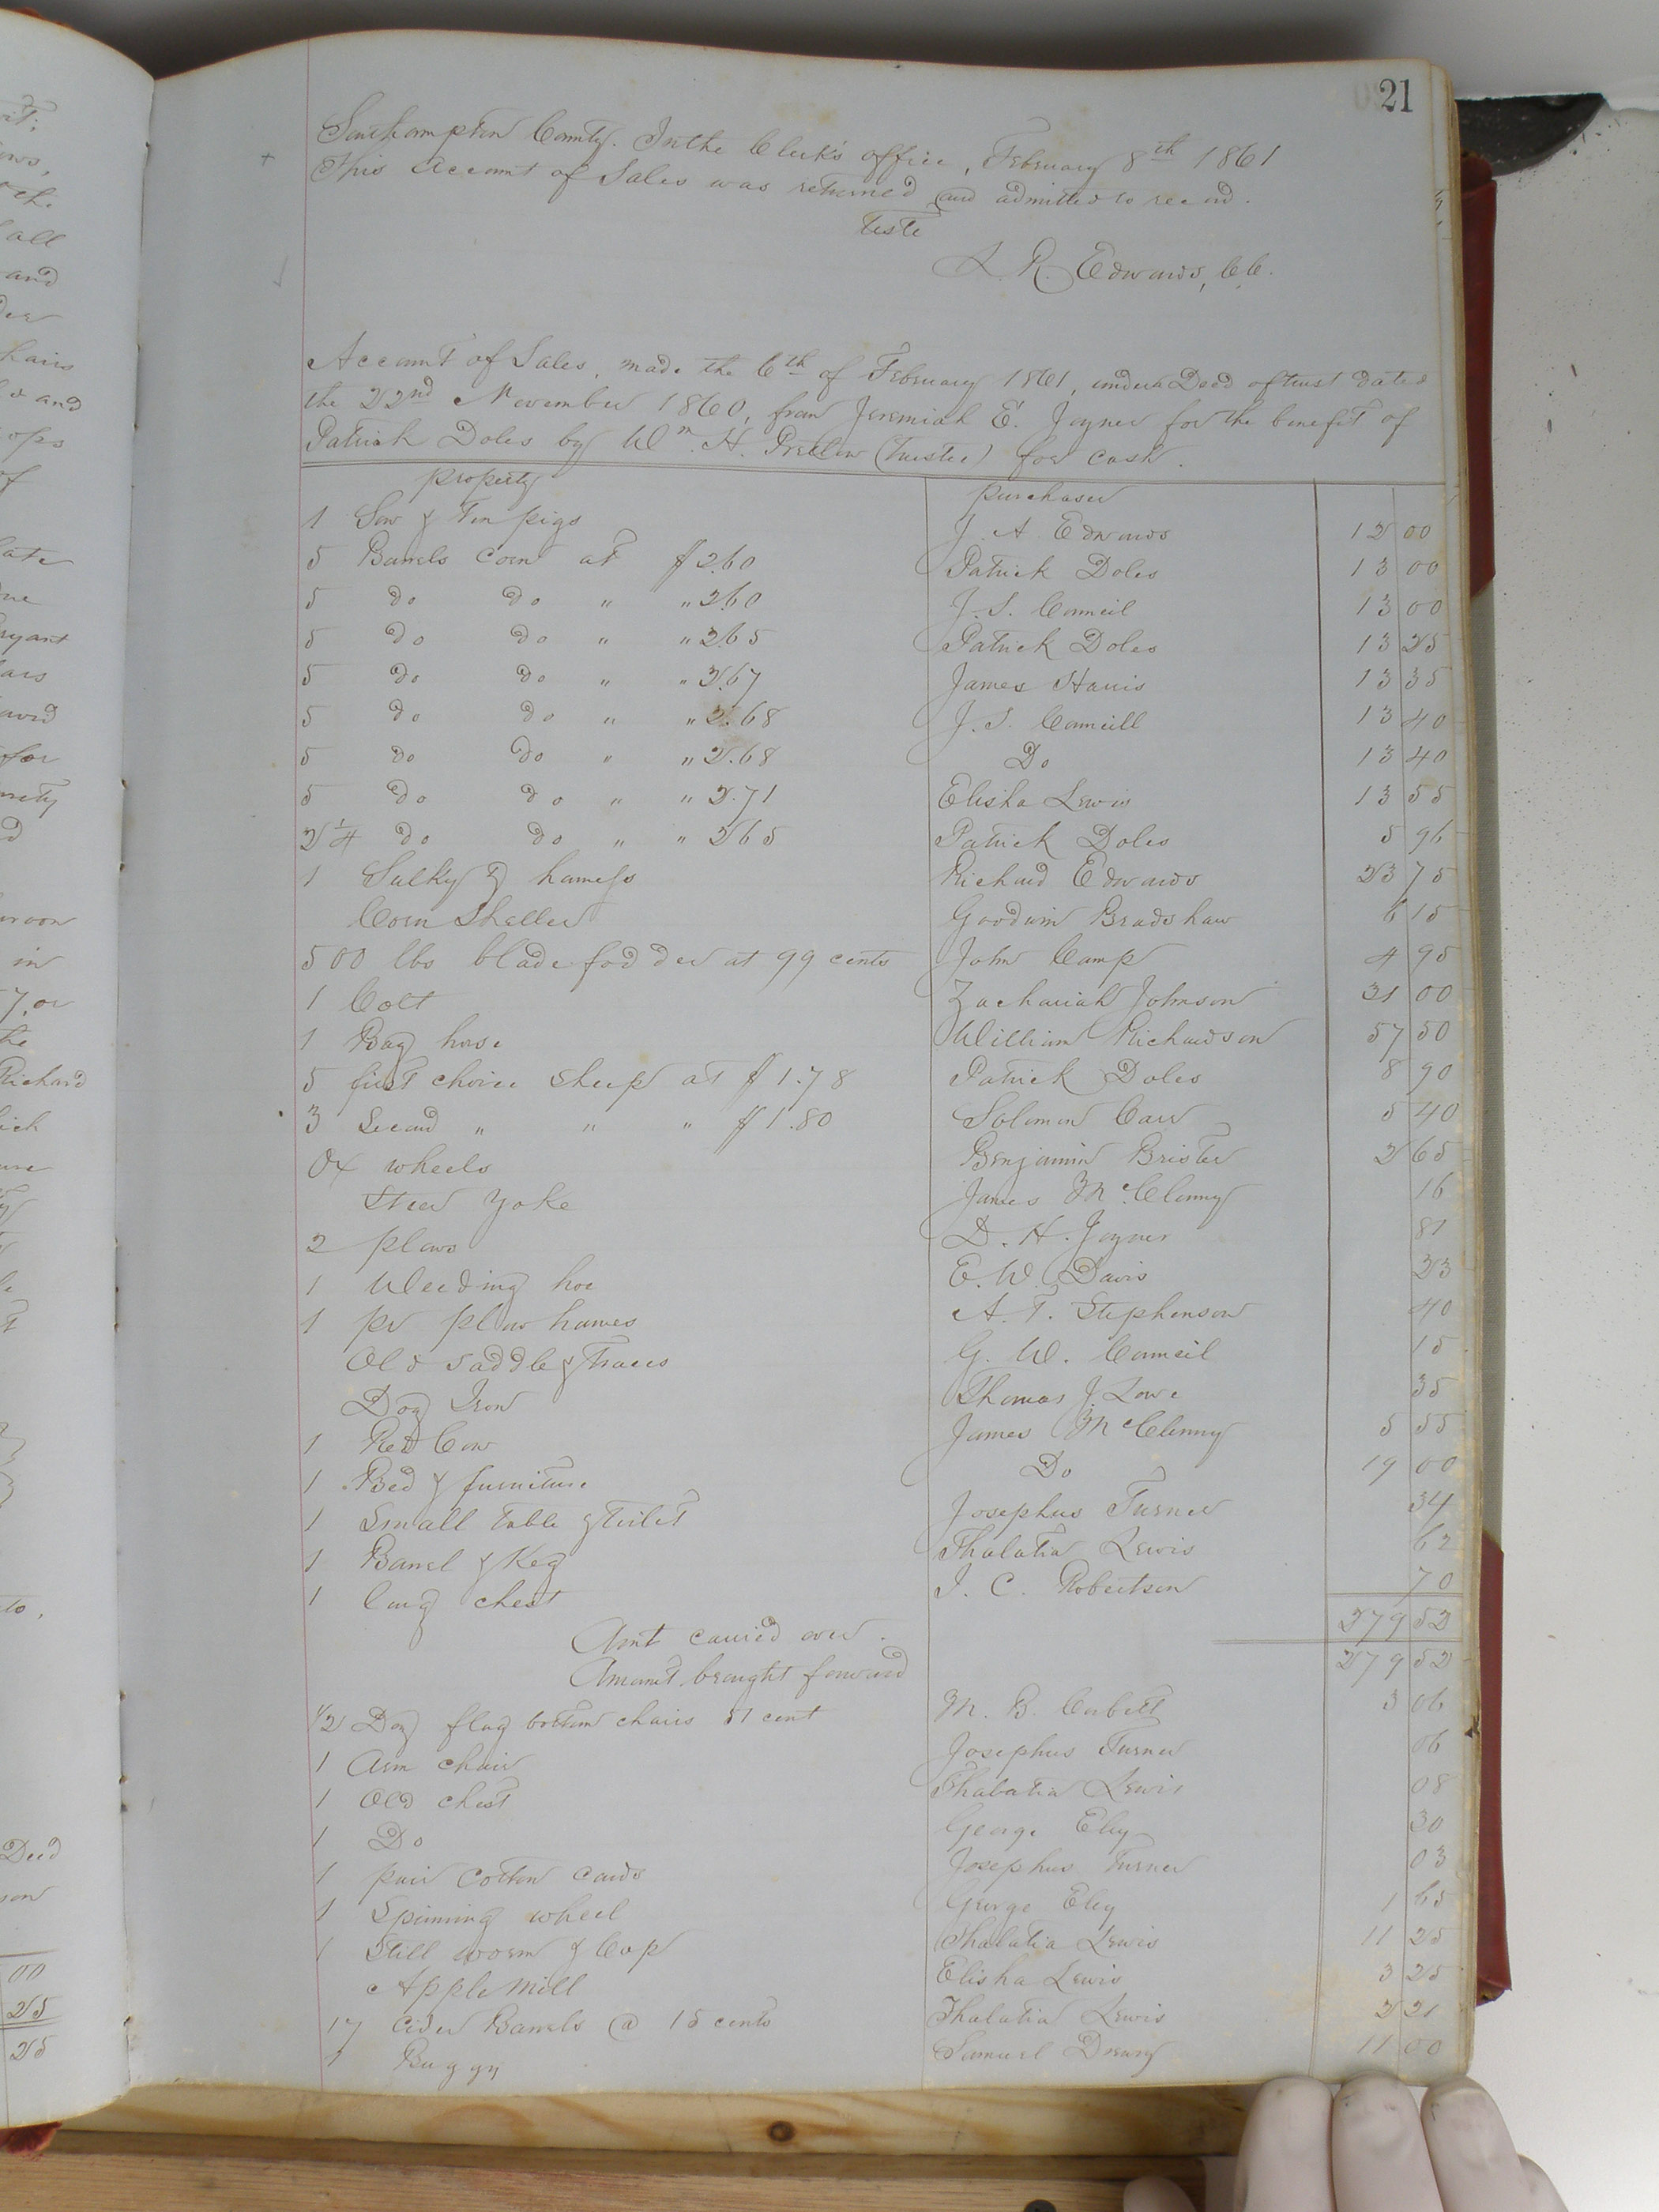 21
Southampton County. In the Clerk's office, February 8th 1861
This Account of Sales was returned and admitted to record.
Teste
L. R. Edwards, C.C.
Account of Sales, made the 6th of February 1861, under a Deed of trust dated
the 22nd November 1860, from Jeremiah E. Joyner for the benefit of
Patrick Doles by Wm. H. Pretlow (Trustee) for cash.
property purchaser
1 Sow & Ten pigs J. A. Edwards 12 00
5 Barrels corn at $2.60 Patrick Doles 13 00
5 do do " " 2.60 J. S. Councill 13 00
5 do do " " 2.65 Patrick Doles 13 25
5 do do " " 2.67 James Harris 13 35
5 do do " " 2.68 J. S. Councill 13 40
5 do do " " 2.68 Do 13 40
5 do do " " 2.71 Elisha Lewis 13 55
2 1/4 do do " " 2 65 Patrick Doles 5 96
1 Sulky & harness Richard Edwards 23 75
Corn Sheller Goodwin Bradshaw 6 15
500 lbs blade fodder at 99 cents John Camp 4 95
1 Colt Zachariah Johnson 31 00
1 Bay horse William Richardson 57 50
5 first choice sheep at $1.78 Patrick Doles 8 90
3 Second " " " $1.80 Solomon Carr 5 40
Ox wheels Benjamin Brister 2 65
Steer Yoke James McClenny 16
2 plows D. H. Joyner 81
1 Weeding hoe E. W. Davis 23
1 pr plow hames A. T. Stephenson 40
Old saddle & Traces G. W. Council 15
Dog Iron Thomas J. Lowe 35
1 Red Cow James McClenny 5 55
1 Bed & furniture Do 19 00
1 Small table & Toilet Josephus Turner 34
1 Barrel & Keg Thalatia Lewis 62
1 large chest J. C. Robertson 70
Amt carried over. 279 52
Amount brought forward 279 52
1/2 Doz flag bottom chairs 51 cent M. B. Corbett 3 06
1 Arm chair Josephus Turner 06
1 Old chest Thalatia Lewis 08
1 Do George Eley 30
1 pair cotton cards Josephus Turner 03
1 Spinning wheel George Eley 1 65
1 Still worm & Cap Thalatia Lewis 11 25
Apple Mill Elisha Lewis 3 25
17 Cider Barrels @ 13 cents Thalatia Lewis 2 21
1 Buggy Samuel Drewry 11 00